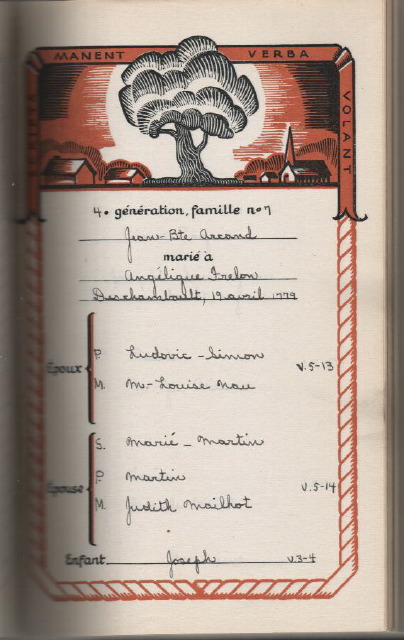 MANENT VERBA
VOLANT
4e génération, famille no 7
Jean-Bte Arcand
marié à
Angélique Frelon
Deschambault, 19 avril 1779
Époux
P. Ludovic-Simon
M. M-Louise Nau
V.5-13
S. Marié - Martin
Épouse
P. Martin
M. Judith Mailhot
V.5-14
Enfant Joseph V.3-4